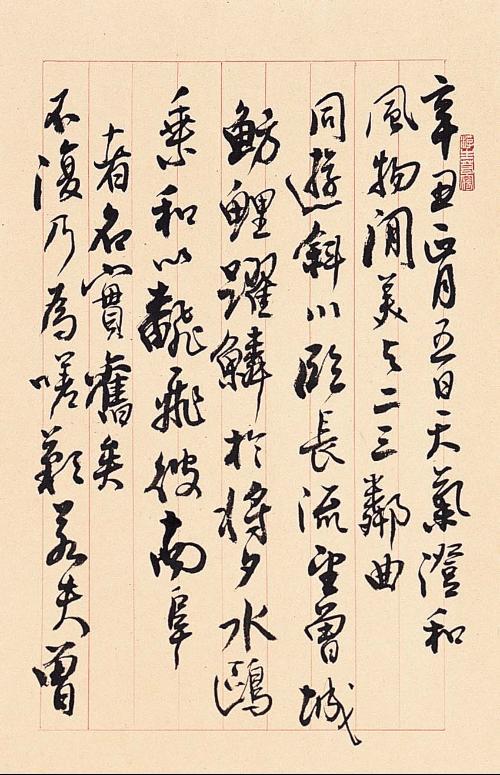 辛丑正月五日天氣澄和
風物閒美与二三鄰曲
同遊斜川臨長流望曾城
魴鯉躍鱗於將夕水鷗
乘和以飜飛彼南阜
者名實舊矣
不復乃為嗟歎若夫曾